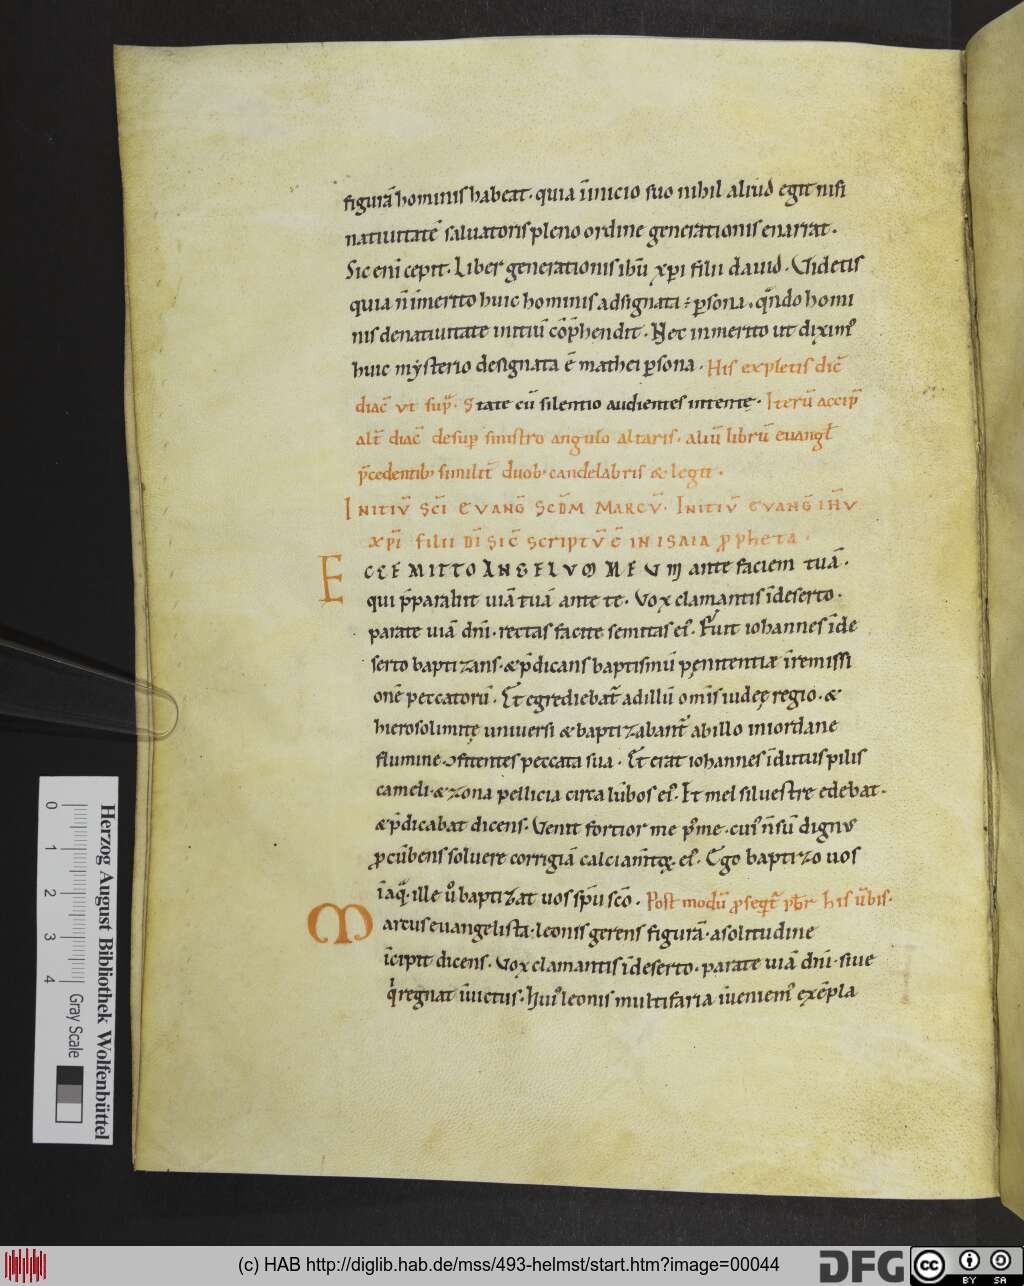 figurā hominis habeat · quia īinicio suo nihil aliud egit nisi
natiuitatē saluatoris pleno ordine generationis enarrat ·
Sic enī cepit · Liber generationis ihū xp̄i filii dauid · Videtis
quia ñ īmerito huic hominis adsignata ÷ p̱sona · qn̄do homi
nis de natiuitate initiū cōp̄hendit · Nec inmerito ut diximꝰ
huic mysterio designata ē mathei p̱sona · His expletis dic̄
diac̄ ut sup̄ · State cū silentio audientes intentę · Iterū accip̄
alt̄ diac̄ desup̱ sinistro angulo altaris · aliū librū euangl̄
p̄cedentib; similit̄ duob; candelabris & legit ·
INITIV̄ SC̄I EVANḠ SCD̄M MARCV̄ · INITIV̄ EVANḠ IH̄V
XP̄I FILII DĪ SIC̄ SCRIPTV̄ Ē IN ISAIA PROPHETA ·
ECCE MITTO ANGELVM MEVM ante faciem tuā ·
qui p̄parabit uiā tuā ante te · Vox clamantis īdeserto ·
parate uiā dn̄i · rectas facite semitas eiꝰ · Fuit iohannes īde
serto baptizans · & p̄dicans baptismū penitentiæ īremissi
onē peccatorū · Et egrediebat̄ adillū om̄is iudeę regio · &
hierosolimitę uniuersi & baptizabant̄ abillo iniordane
flumine · ↄfitentes peccata sua · Et erat iohannes īdutus pilis
cameli · & zona pellicia circa lūbos eiꝰ · Et mel siluestre edebat ·
& p̄dicabat dicens · Venit fortior me pꝰ me · cuiꝰ ñ sū dignus
ꝓcūbens soluere corrigiā calciam̄toꝝ eiꝰ · Ego baptizo uos
īaq̄ · ille u̇ baptizat uos sp̄u sc̄o · Post modū ꝓseqt̄ pb̄r his ūbis ·
Marcus euangelista · leonis gerens figurā · asolitudine
īcipit dicens · Vox clamantis īdeserto · parate uiā dn̄i · siue
q̇ regnat īuictus · Huiꝰ leonis multifaria īuenimꝰ exēpla
Herzog August Bibliothek Wolfenbüttel
0 1 2 3 4 Gray Scale
(c) HAB http://diglib.hab.de/mss/493-helmst/start.htm?image=00044
DFG
cc BY SA